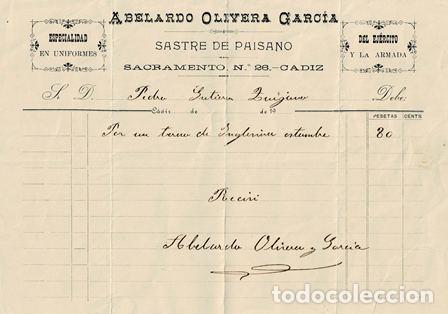 ABELARDO OLIVERA GARCÍA
ESPECIALIDAD
EN UNIFORMES
SASTRE DE PAISANO
DEL EJÉRCITO
Y LA ARMADA
SACRAMENTO, N.º 26.-CADIZ
S. D. Pedro Gutierrez Debe
Cádiz de de 19
PESETAS CENTS.
Por un terno de 80
Recibí
Abelardo Olivera y García
todocoleccion.net